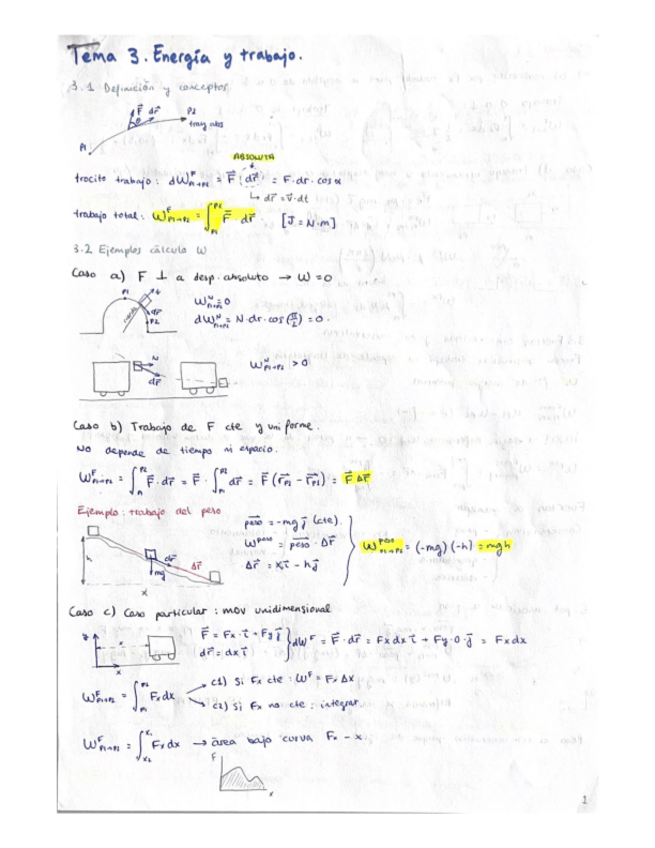 Tema 3. Energía y trabajo.
3.1 Definición y conceptos
F dr P2
tray abs
P1
ABSOLUTA
trocito trabajo: dW^F_{P1→P2} = F · dr = F · dr · cos α
↳ dr = v · dt
trabajo total: W^F_{P1→P2} = ∫_{P1}^{P2} F · dr . [J = N·m]
3.2 Ejemplos cálculo W
Caso a) F ⊥ a desp. absoluto → W = 0
P1
dr
P2
W^N_{P1→P2} = 0
dW^N_{P1→P2} = N · dr · cos(π/2) = 0.
N
dr
W^N_{P1→P2} > 0
Caso b) Trabajo de F cte y uniforme.
No depende de tiempo ni espacio.
W^F_{P1→P2} = ∫_{P1}^{P2} F · dr = F · ∫_{P1}^{P2} dr = F (r_{P2} − r_{P1}) = F Δr
Ejemplo: trabajo del peso
peso = −mg j (cte).
W^{peso} = peso · Δr
Δr = x i − h j
W^{peso}_{P1→P2} = (−mg)(−h) = mgh
h
dr
Δr
mg
x
Caso c) Caso particular: mov unidimensional
x
x
F = Fx · i + Fy j
dr = dx i
dW^F = F · dr = Fx dx i + Fy · 0 · j = Fx dx
W^F_{P1→P2} = ∫_{P1}^{P2} Fx dx
c1) Si Fx cte : W^F = Fx Δx
c2) Si Fx no cte : integrar.
W^F_{P1→P2} = ∫_{x2}^{x1} Fx dx → área bajo curva Fx − x.
F
x
1